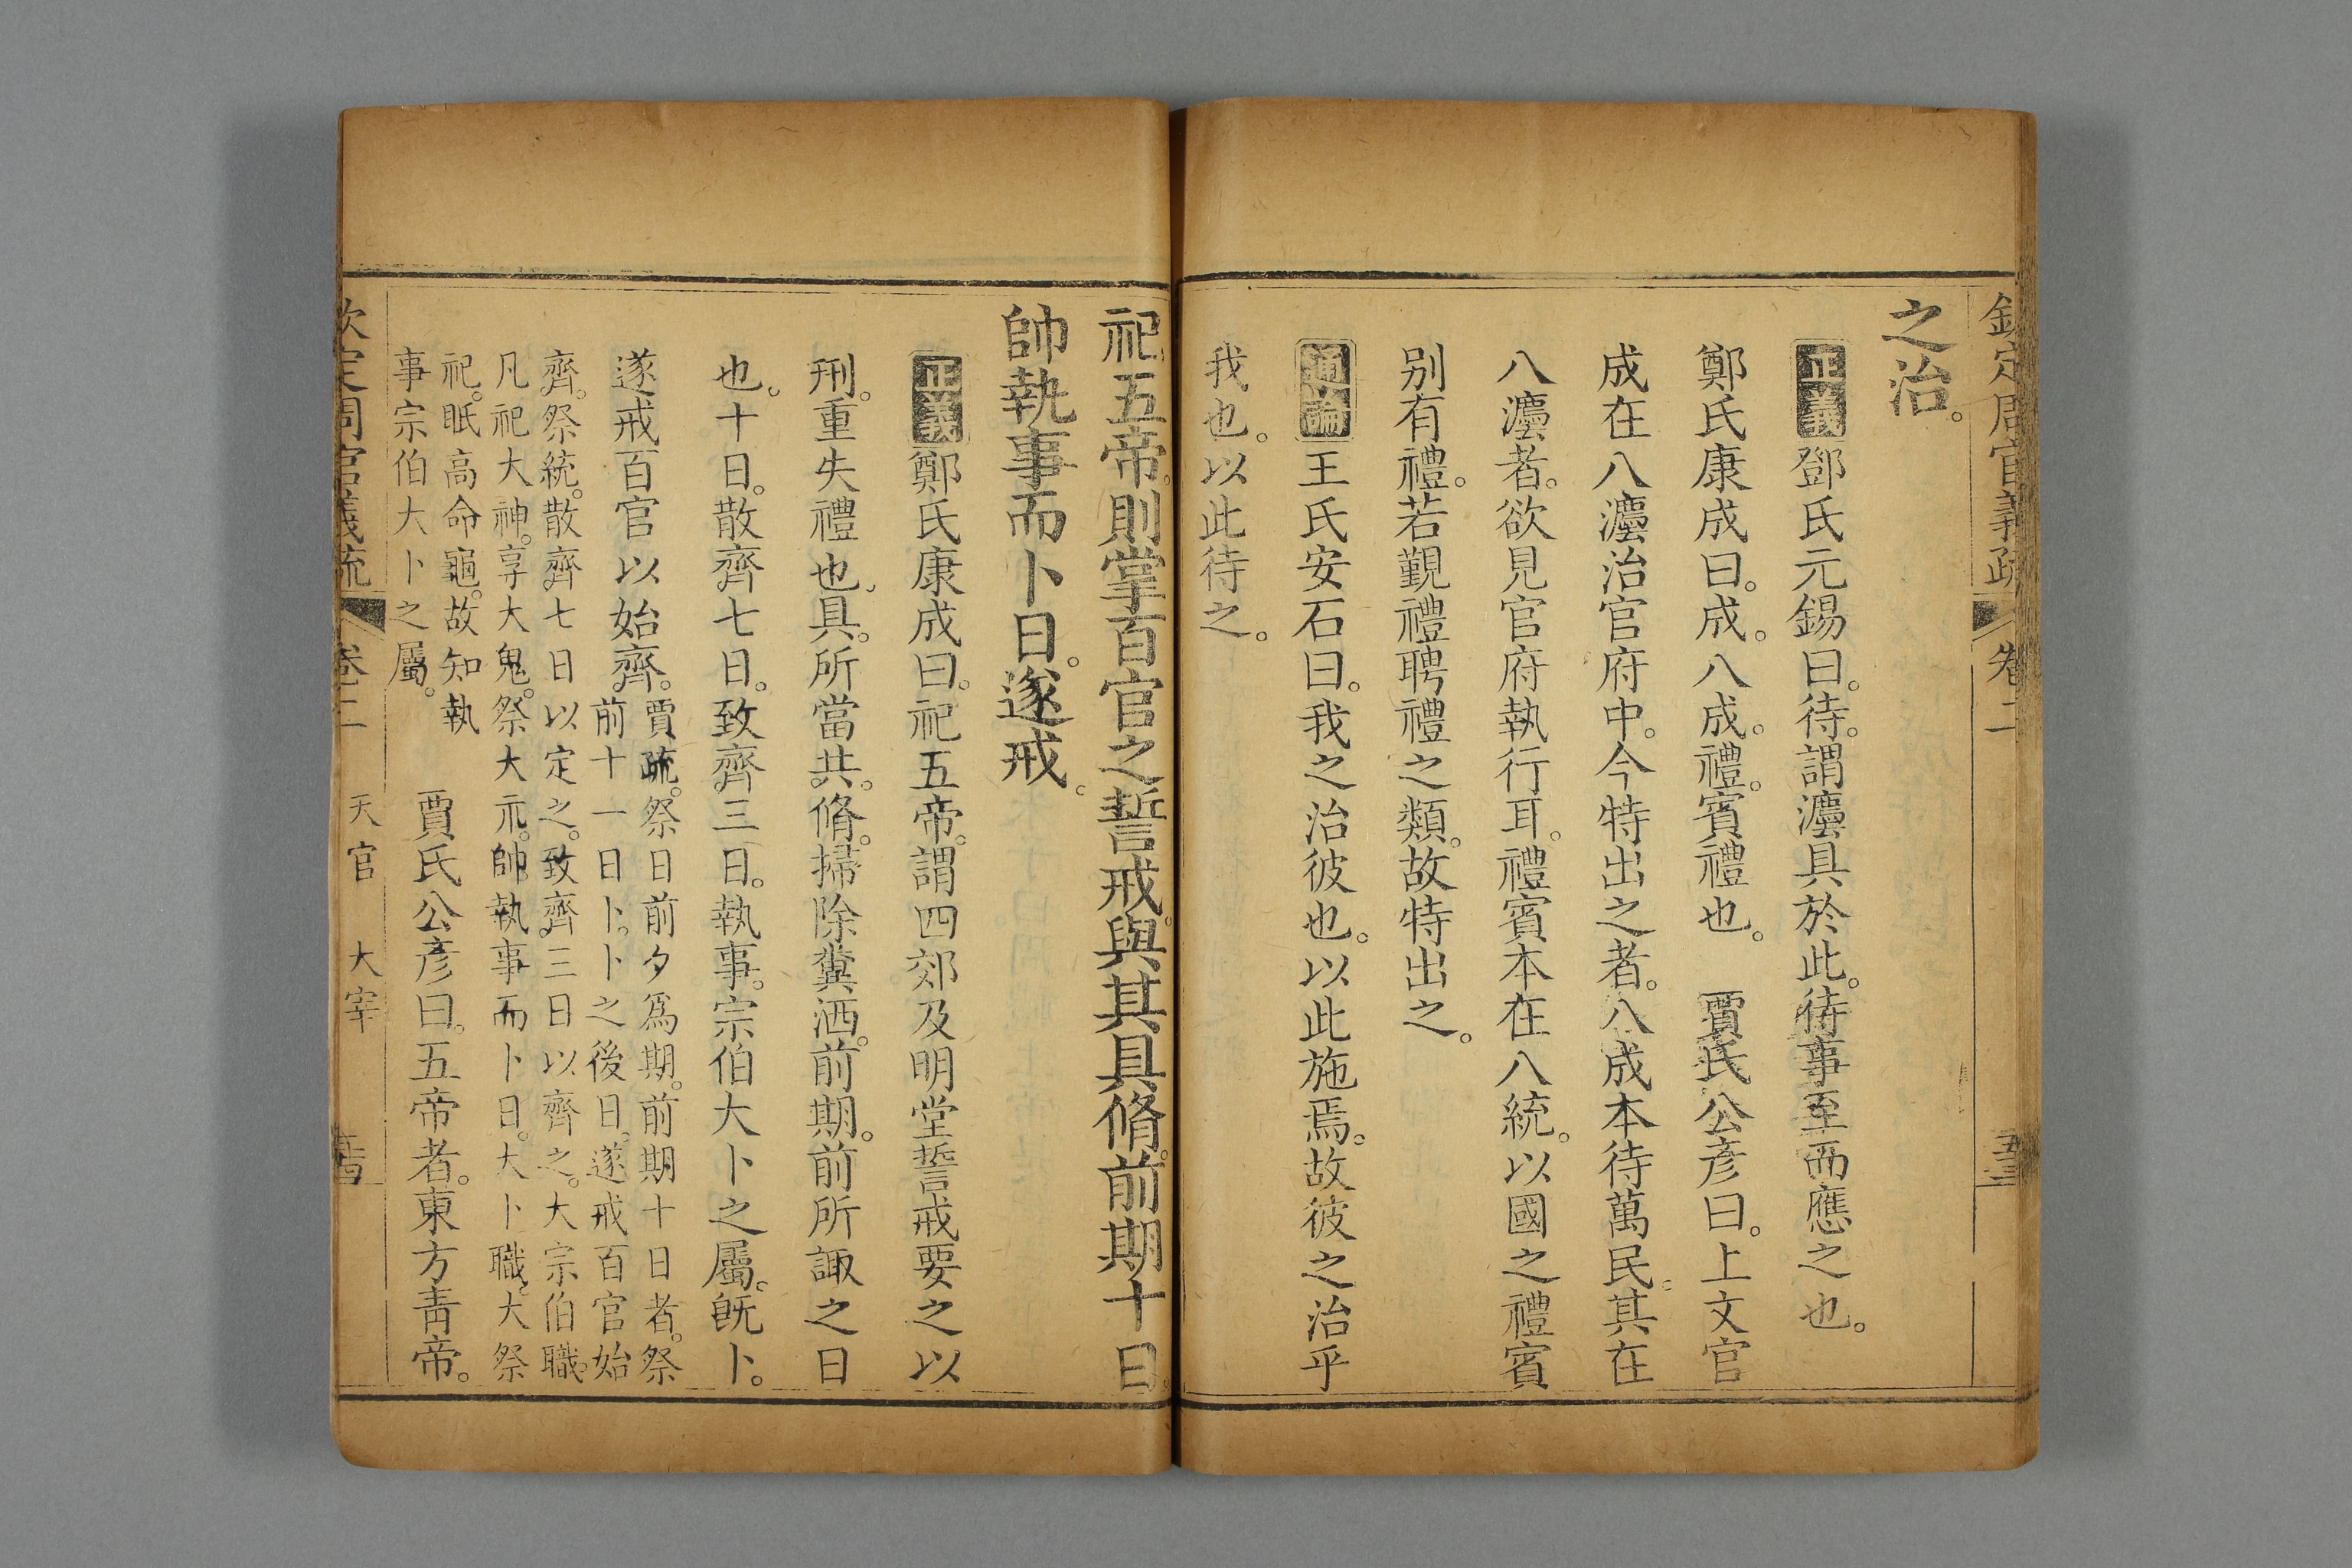 欽定周官義疏 卷二
之治。
正義鄧氏元錫曰。待。謂灋具於此。待事至而應之也。
鄭氏康成曰。成。八成。禮。賓禮也。 賈氏公彥曰。上文官
成在八灋治官府中。今特出之者。八成本待萬民。其在
八灋者。欲見官府執行耳。禮賓本在八統。以國之禮賓
別有禮。若覲禮聘禮之類。故特出之。
通論王氏安石曰。我之治彼也。以此施焉。故彼之治乎
我也。以此待之。
祀五帝。則掌百官之誓戒。與其具脩。前期十日。
帥執事而卜日。遂戒。
正義鄭氏康成曰。祀五帝。謂四郊及明堂誓戒要之以
刑。重失禮也。具。所當共。脩。掃除糞洒。前期。前所諏之日
也。十日。散齊七日。致齊三日。執事。宗伯大卜之屬。旣卜。
遂戒百官以始齊。
賈疏。祭日前夕爲期。前期十日者。祭
前十一日卜。卜之後日。遂戒百官始
齊。祭統。散齊七日以定之。致齊三日以齊之。大宗伯職。
凡祀大神。享大鬼。祭大示。帥執事而卜日。大卜職。大祭
祀。眂高命龜。故知執
事宗伯大卜之屬。
賈氏公彥曰。五帝者。東方靑帝。
欽定周官義疏 卷二 天官 大宰